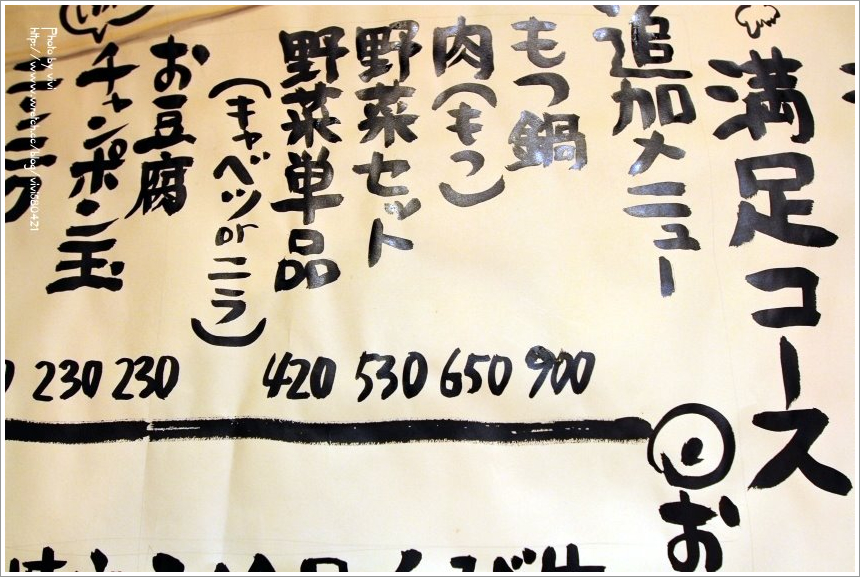 満足コース
追加メニュー
もつ鍋 900
肉(もつ) 650
野菜セット 530
野菜単品 420
(キャベツorニラ)
お豆腐 230
チャンポン玉 230
お
Photo by vivi
https://www.wretch.cc/blog/vivi380421